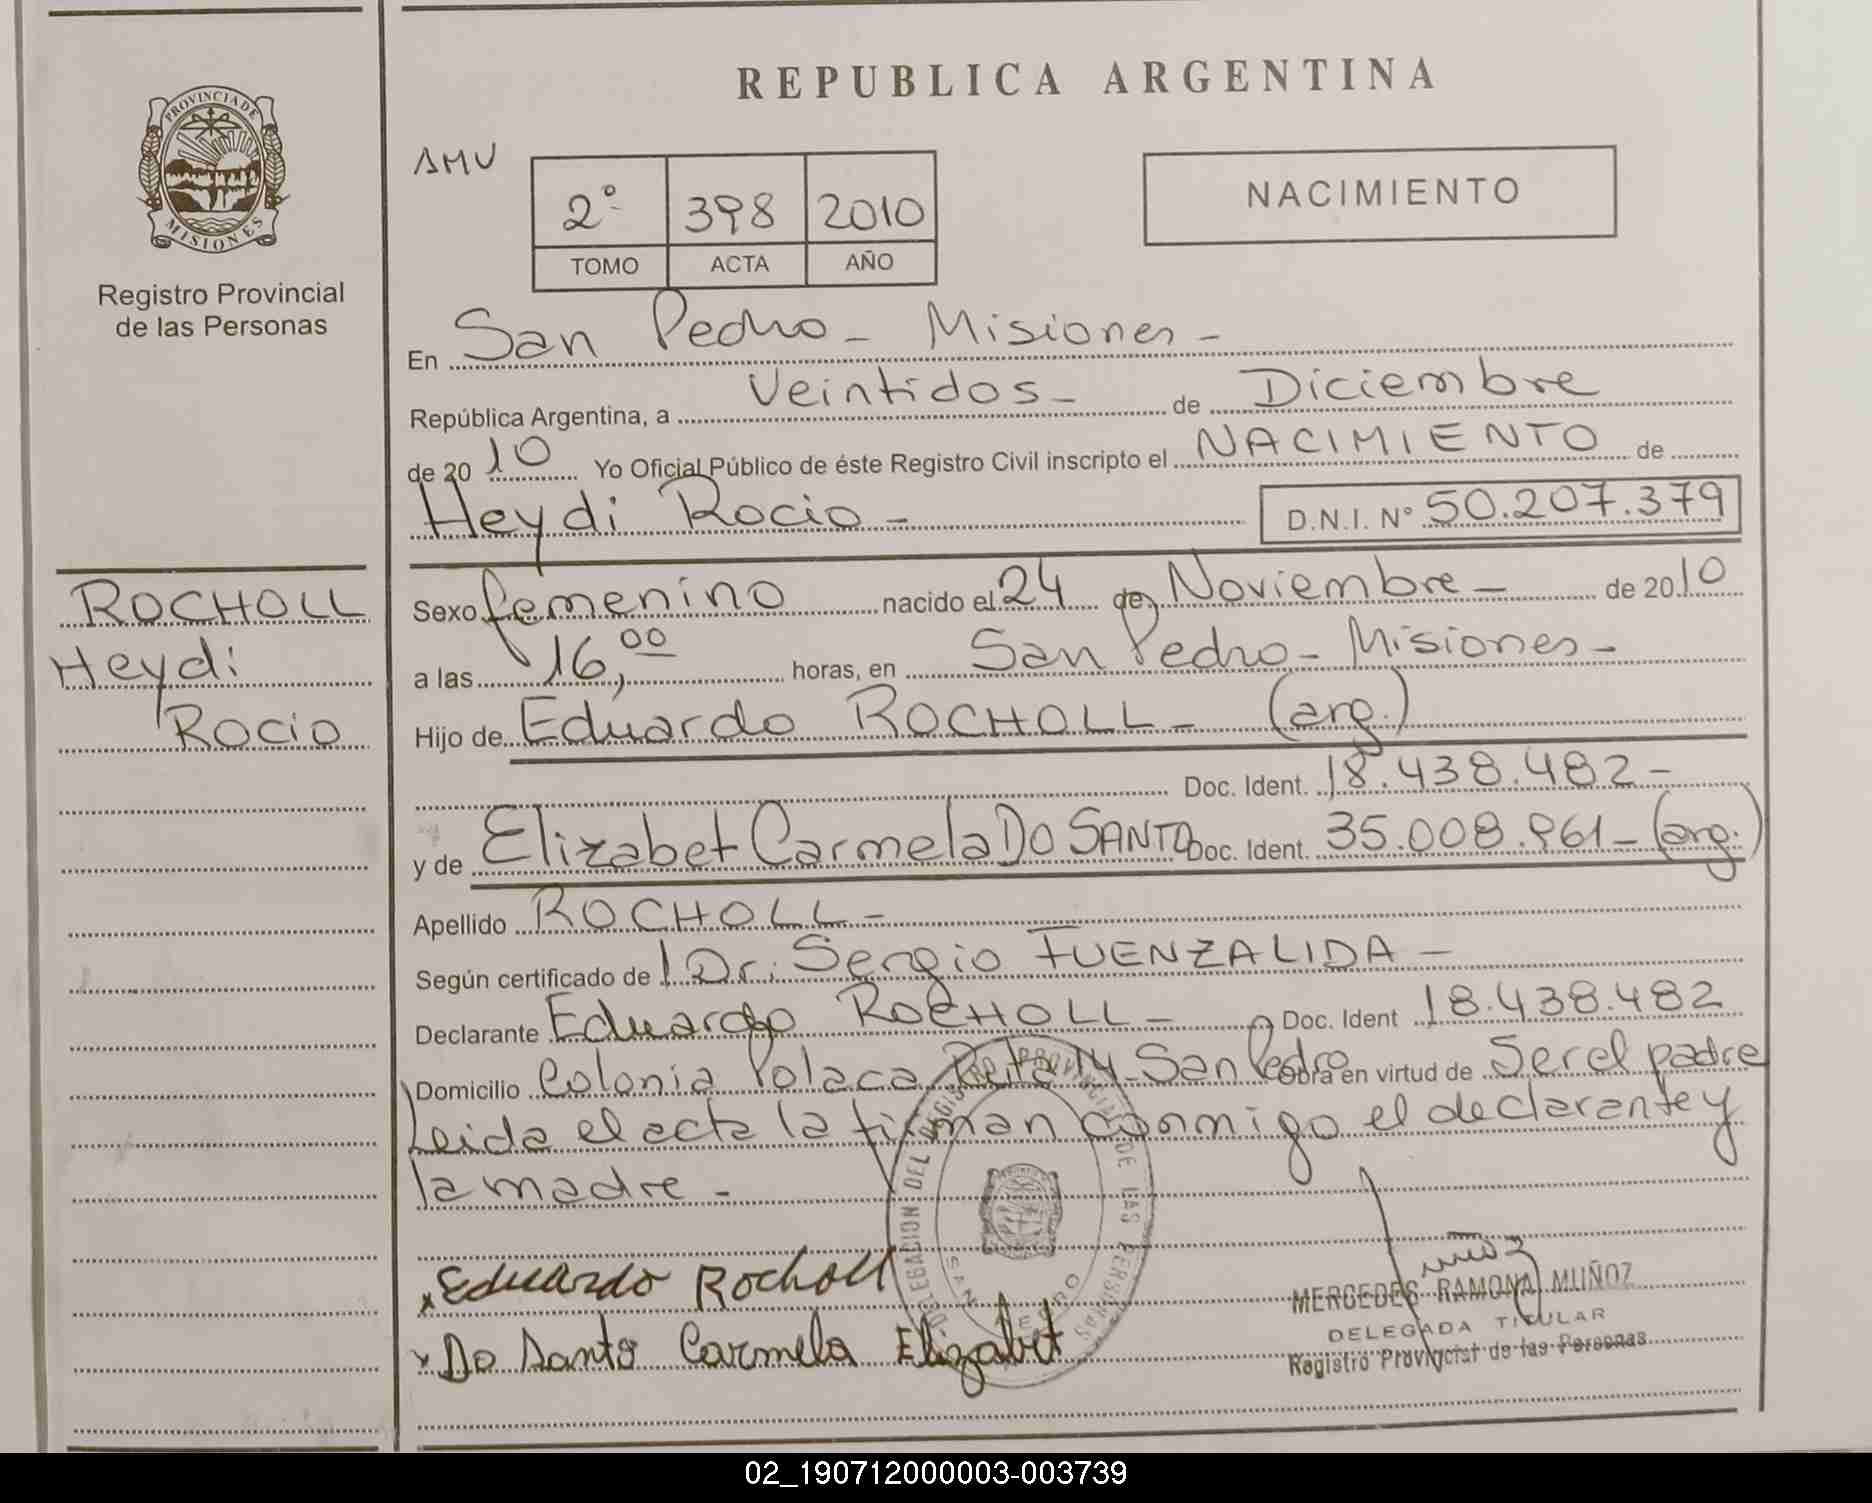 REPUBLICA ARGENTINA
PROVINCIA DE
MISIONES
Registro Provincial
de las Personas
AMU
2º 398 2010
TOMO ACTA AÑO
NACIMIENTO
En San Pedro - Misiones -
República Argentina, a Veintidos - de Diciembre
de 2010 Yo Oficial Público de éste Registro Civil inscripto el NACIMIENTO de
Heydi Rocio - D.N.I. Nº 50.207.379
ROCHOLL
Heydi
Rocio
Sexo femenino nacido el 24 de Noviembre - de 2010
a las 16,00 horas, en San Pedro - Misiones -
Hijo de Eduardo ROCHOLL - (arg.)
Doc. Ident. 18.438.482 -
y de Elizabet Carmela DO SANTO Doc. Ident. 35.008.961 - (arg.)
Apellido ROCHOLL -
Según certificado de Dr. Sergio FUENZALIDA -
Declarante Eduardo ROCHOLL - Doc. Ident 18.438.482
Domicilio Colonia Polaca Ruta 14 - San Pedro Obra en virtud de Ser el padre
Leida el acta la firman conmigo el declarante y
la madre -
DELEGACION DEL REGISTRO PROVINCIAL DE LAS PERSONAS
SAN PEDRO
x Eduardo Rocholl
x Do Santo Carmela Elizabet
MERCEDES RAMONA MUÑOZ
DELEGADA TITULAR
Registro Provincial de las Personas
02_190712000003-003739